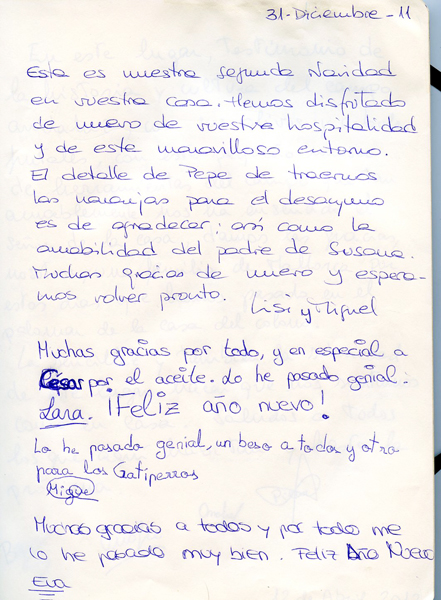 31-Diciembre-11
Esta es nuestra segunda Navidad
en vuestra casa. Hemos disfrutado
de nuevo de vuestra hospitalidad
y de este maravilloso entorno.
El detalle de Pepe de traernos
las naranjas para el desayuno
es de agradecer; así como la
amabilidad del padre de Susana.
Muchas gracias de nuevo y espera-
mos volver pronto. Lisi y Miguel
Muchas gracias por todo, y en especial a
César por el aceite. Lo he pasado genial.
Lara. ¡Feliz año nuevo!
Lo he pasado genial, un beso a todos y otro
para los Gatiperros
Migue
Muchas gracias a todos y por todo me
lo he pasado muy bien. Feliz Año Nuevo
Eva